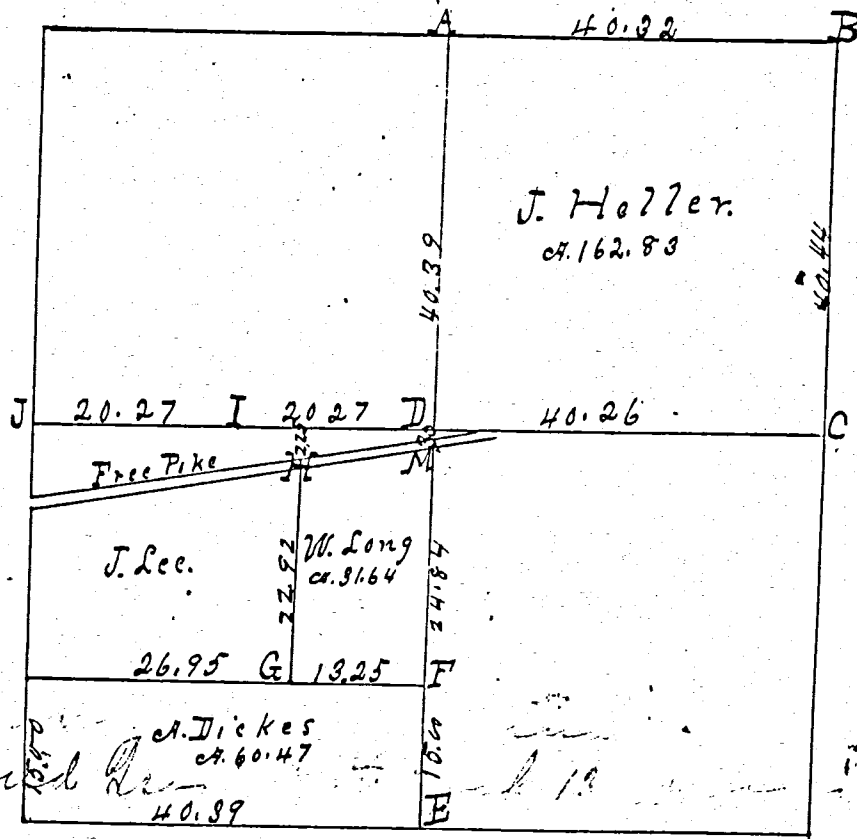 A 40.32 B
J. Holler.
A. 162.83
40.39
40.44
J 20.27 I 20 27 D 40.26 C
2.25
Free Pike
H M
J. Lee.
W. Long
A. 31.64
22.92
24.84
26.95 G 13.25 F
A. Dickes
A. 60.47
15.
40.39 E